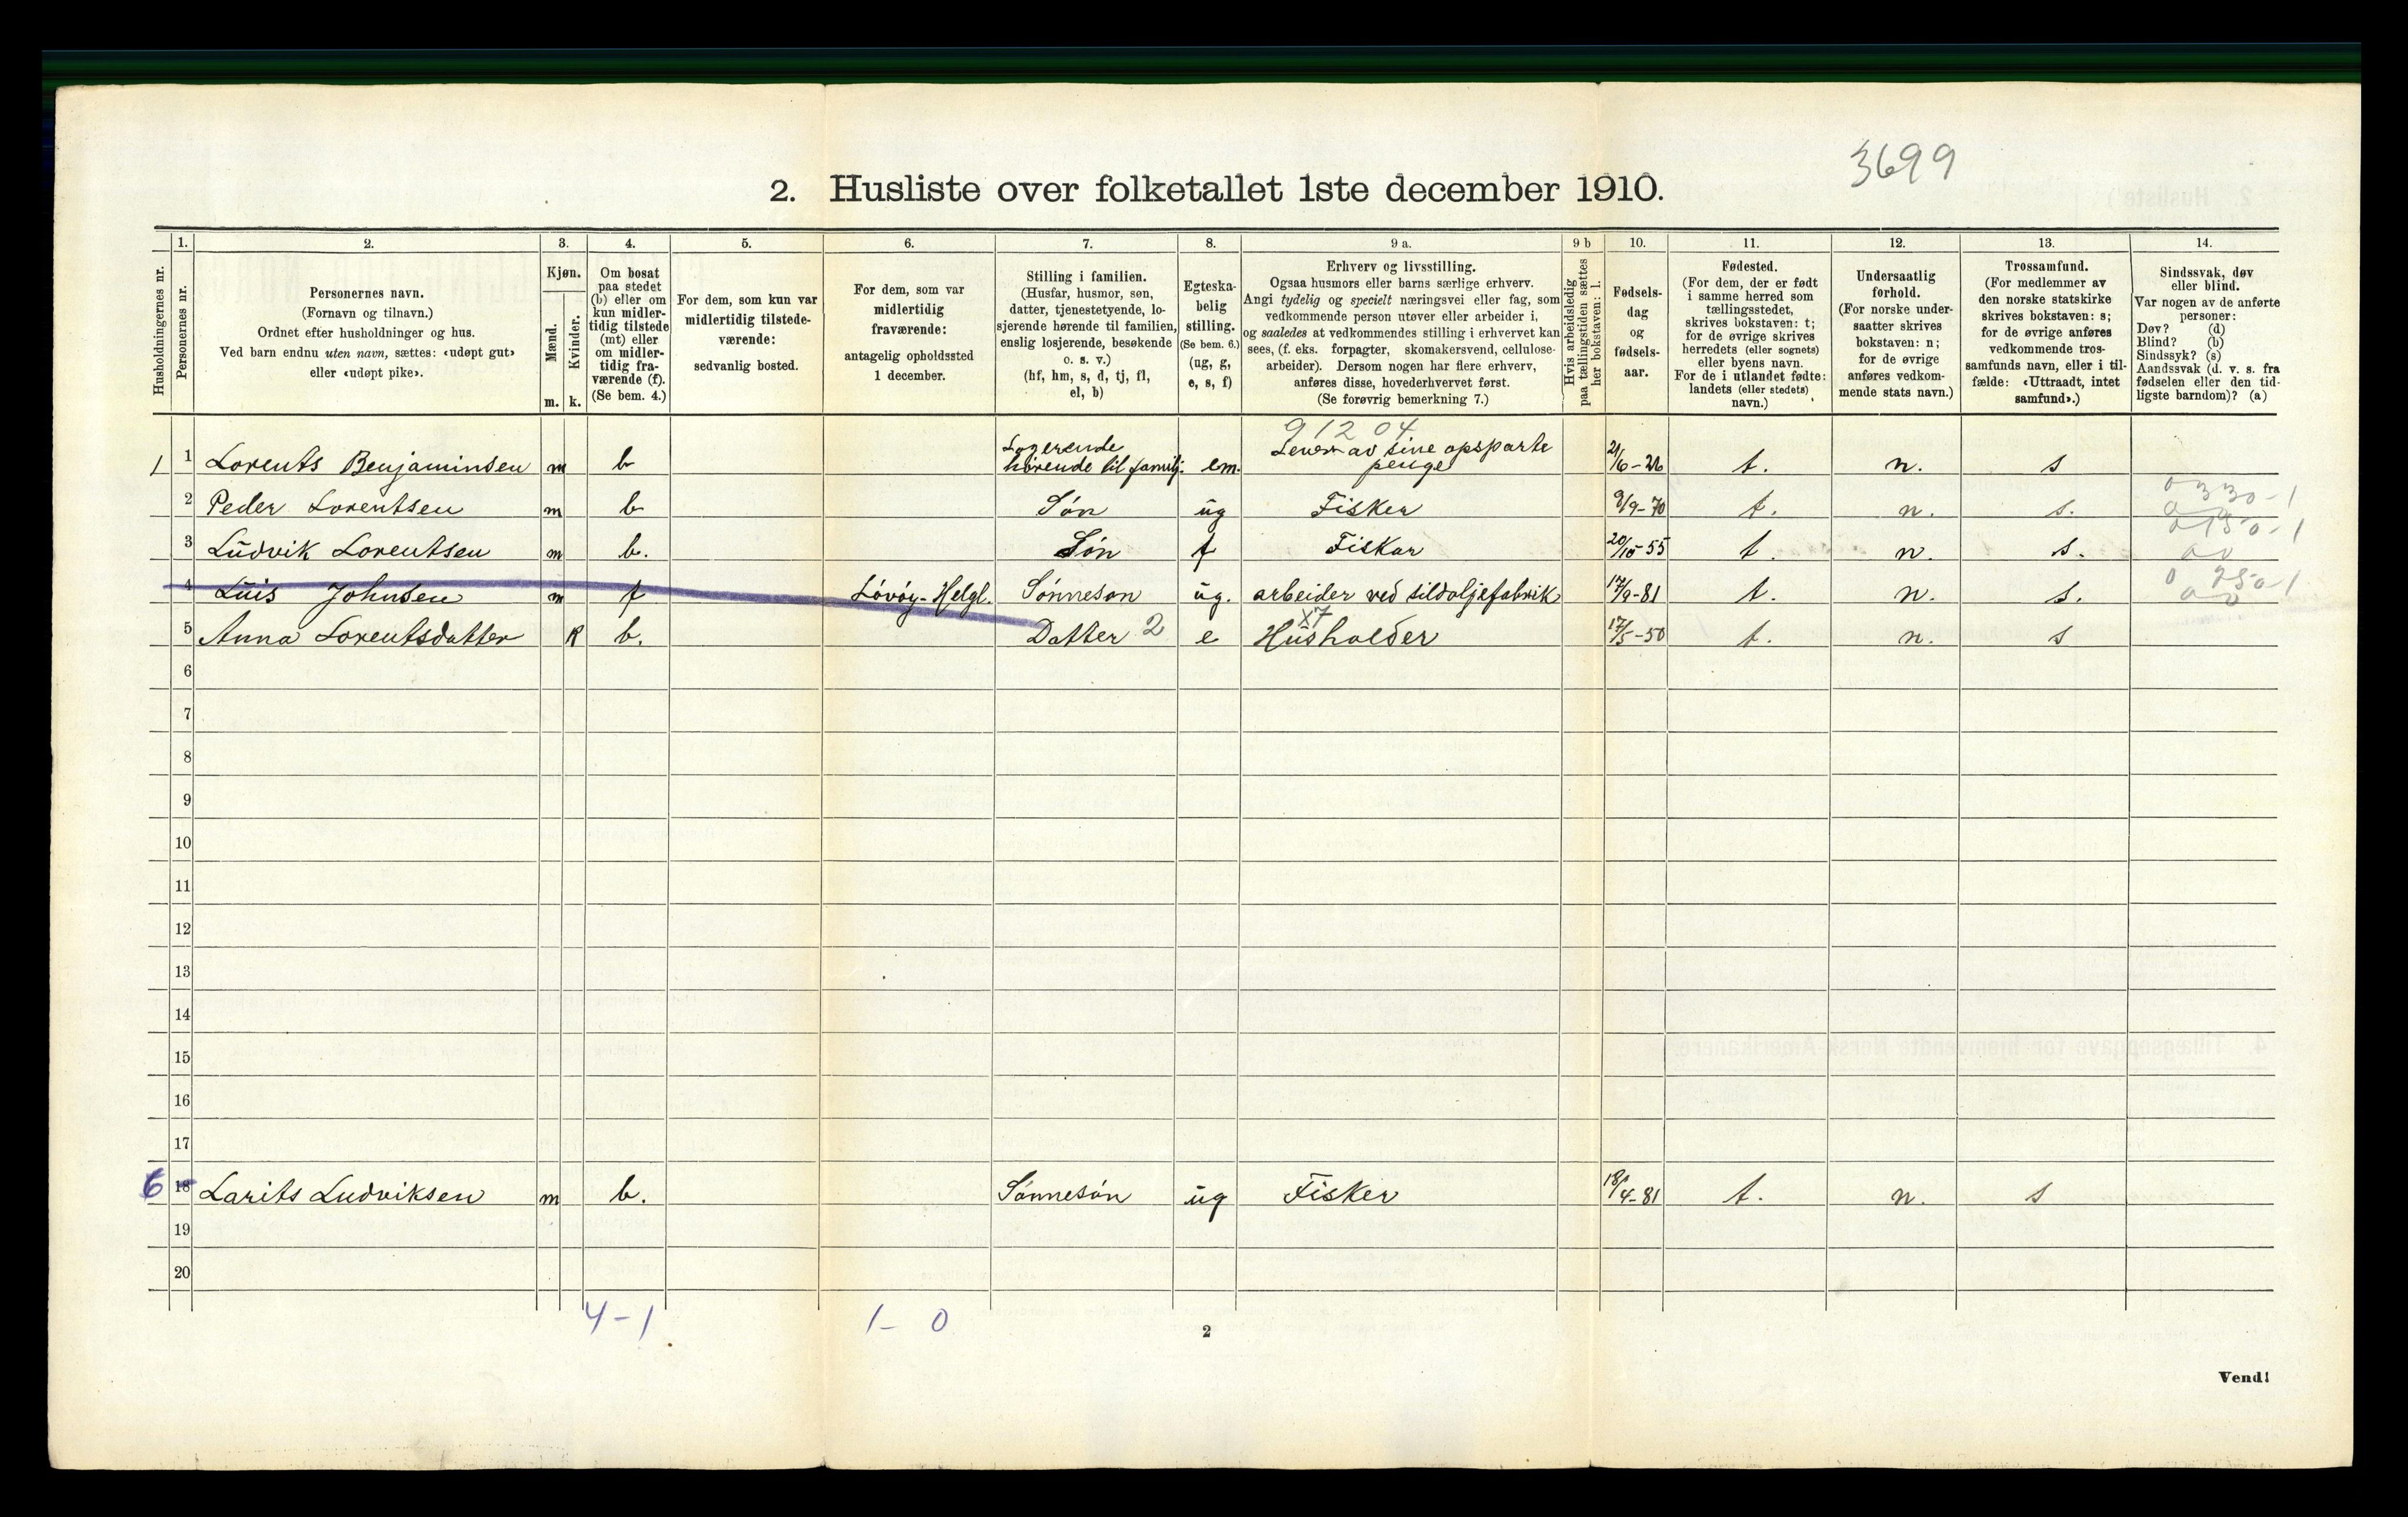 3699
2. Husliste over folketallet 1ste december 1910.
Husholdningernes nr.
1.
Personernes nr.
2.
Personernes navn.
(Fornavn og tilnavn.)
Ordnet efter husholdninger og hus.
Ved barn endnu uten navn, sættes: «udøpt gut»
eller «udøpt pike».
3.
Kjøn.
Mænd.
Kvinder.
m. k.
4.
Om bosat
paa stedet
(b) eller om
kun midler-
tidig tilstede
(mt) eller
om midler-
tidig fra-
værende (f).
(Se bem. 4.)
5.
For dem, som kun var
midlertidig tilstede-
værende:
sedvanlig bosted.
6.
For dem, som var
midlertidig
fraværende:
antagelig opholdssted
1 december.
7.
Stilling i familien.
(Husfar, husmor, søn,
datter, tjenestetyende, lo-
sjerende hørende til familien,
enslig losjerende, besøkende
o. s. v.)
(hf, hm, s, d, tj, fl,
el, b)
8.
Egteska-
belig
stilling.
(Se bem. 6.)
(ug, g,
e, s, f)
9 a.
Erhverv og livsstilling.
Ogsaa husmors eller barns særlige erhverv.
Angi tydelig og specielt næringsvei eller fag, som
vedkommende person utøver eller arbeider i,
og saaledes at vedkommendes stilling i erhvervet kan
sees, (f. eks. forpagter, skomakersvend, cellulose-
arbeider). Dersom nogen har flere erhverv,
anføres disse, hovederhvervet først.
(Se forøvrig bemerkning 7.)
9 b
Hvis arbeidsledig
paa tællingstiden sættes
her bokstaven: l.
10.
Fødsels-
dag
og
fødsels-
aar.
11.
Fødested.
(For dem, der er født
i samme herred som
tællingsstedet,
skrives bokstaven: t;
for de øvrige skrives
herredets (eller sognets)
eller byens navn.
For de i utlandet fødte:
landets (eller stedets)
navn.)
12.
Undersaatlig
forhold.
(For norske under-
saatter skrives
bokstaven: n;
for de øvrige
anføres vedkom-
mende stats navn.)
13.
Trossamfund.
(For medlemmer av
den norske statskirke
skrives bokstaven: s;
for de øvrige anføres
vedkommende tros-
samfunds navn, eller i til-
fælde: «Uttraadt, intet
samfund».)
14.
Sindssvak, døv
eller blind.
Var nogen av de anførte
personer:
Døv? (d)
Blind? (b)
Sindssyk? (s)
Aandssvak (d. v. s. fra
fødselen eller den tid-
ligste barndom)? (a)
9 12 04
1 1 Lorents Benjaminsen m b Logerende hørende til familj. em. Lever av sine opsparte penge 21/6-26 t. n. s
2 Peder Lorentsen m b Søn ug Fisker 9/9-70 t. n. s. 0 330-1
3 Ludvik Lorentsen m b. Søn f Fisker 20/10-55 t. n. s.
4 Luis Johnsen m f Lovøy-Helgl. Sønneson ug. arbeider ved sildoljefabrik 17/9-81 t. n. s.
x7
5 Anna Lorentsdatter k b. Datter 2 e Husholder 17/5-50 t. n. s
6
7
8
9
10
11
12
13
14
15
16
17
6 18 Larits Ludviksen m b. Sønnesøn ug Fisker 18/4-81 t. n. s
19
20
4-1 1-0
2
Vend!